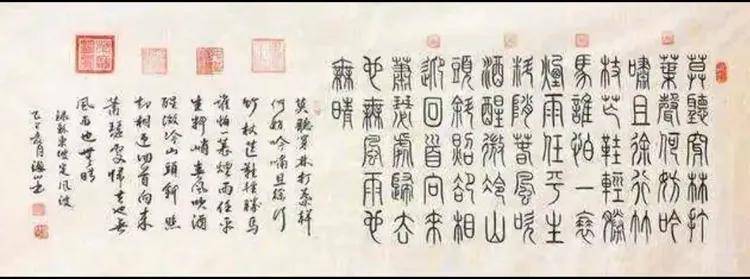 莫聽穿林打
葉聲何妨吟
嘯且徐行竹
杖芒鞋輕勝
馬誰怕一蓑
煙雨任平生
料峭春風吹
酒醒微冷山
頭斜照卻相
迎回首向來
蕭瑟處歸去
也無風雨也
無晴
莫聽穿林打葉聲
何妨吟嘯且徐行
竹杖芒鞋輕勝馬
誰怕一蓑煙雨任平
生料峭春風吹酒
醒微冷山頭斜照
却相迎回首向來
蕭瑟處歸去也無
風雨也無晴
錄蘇東坡定風波